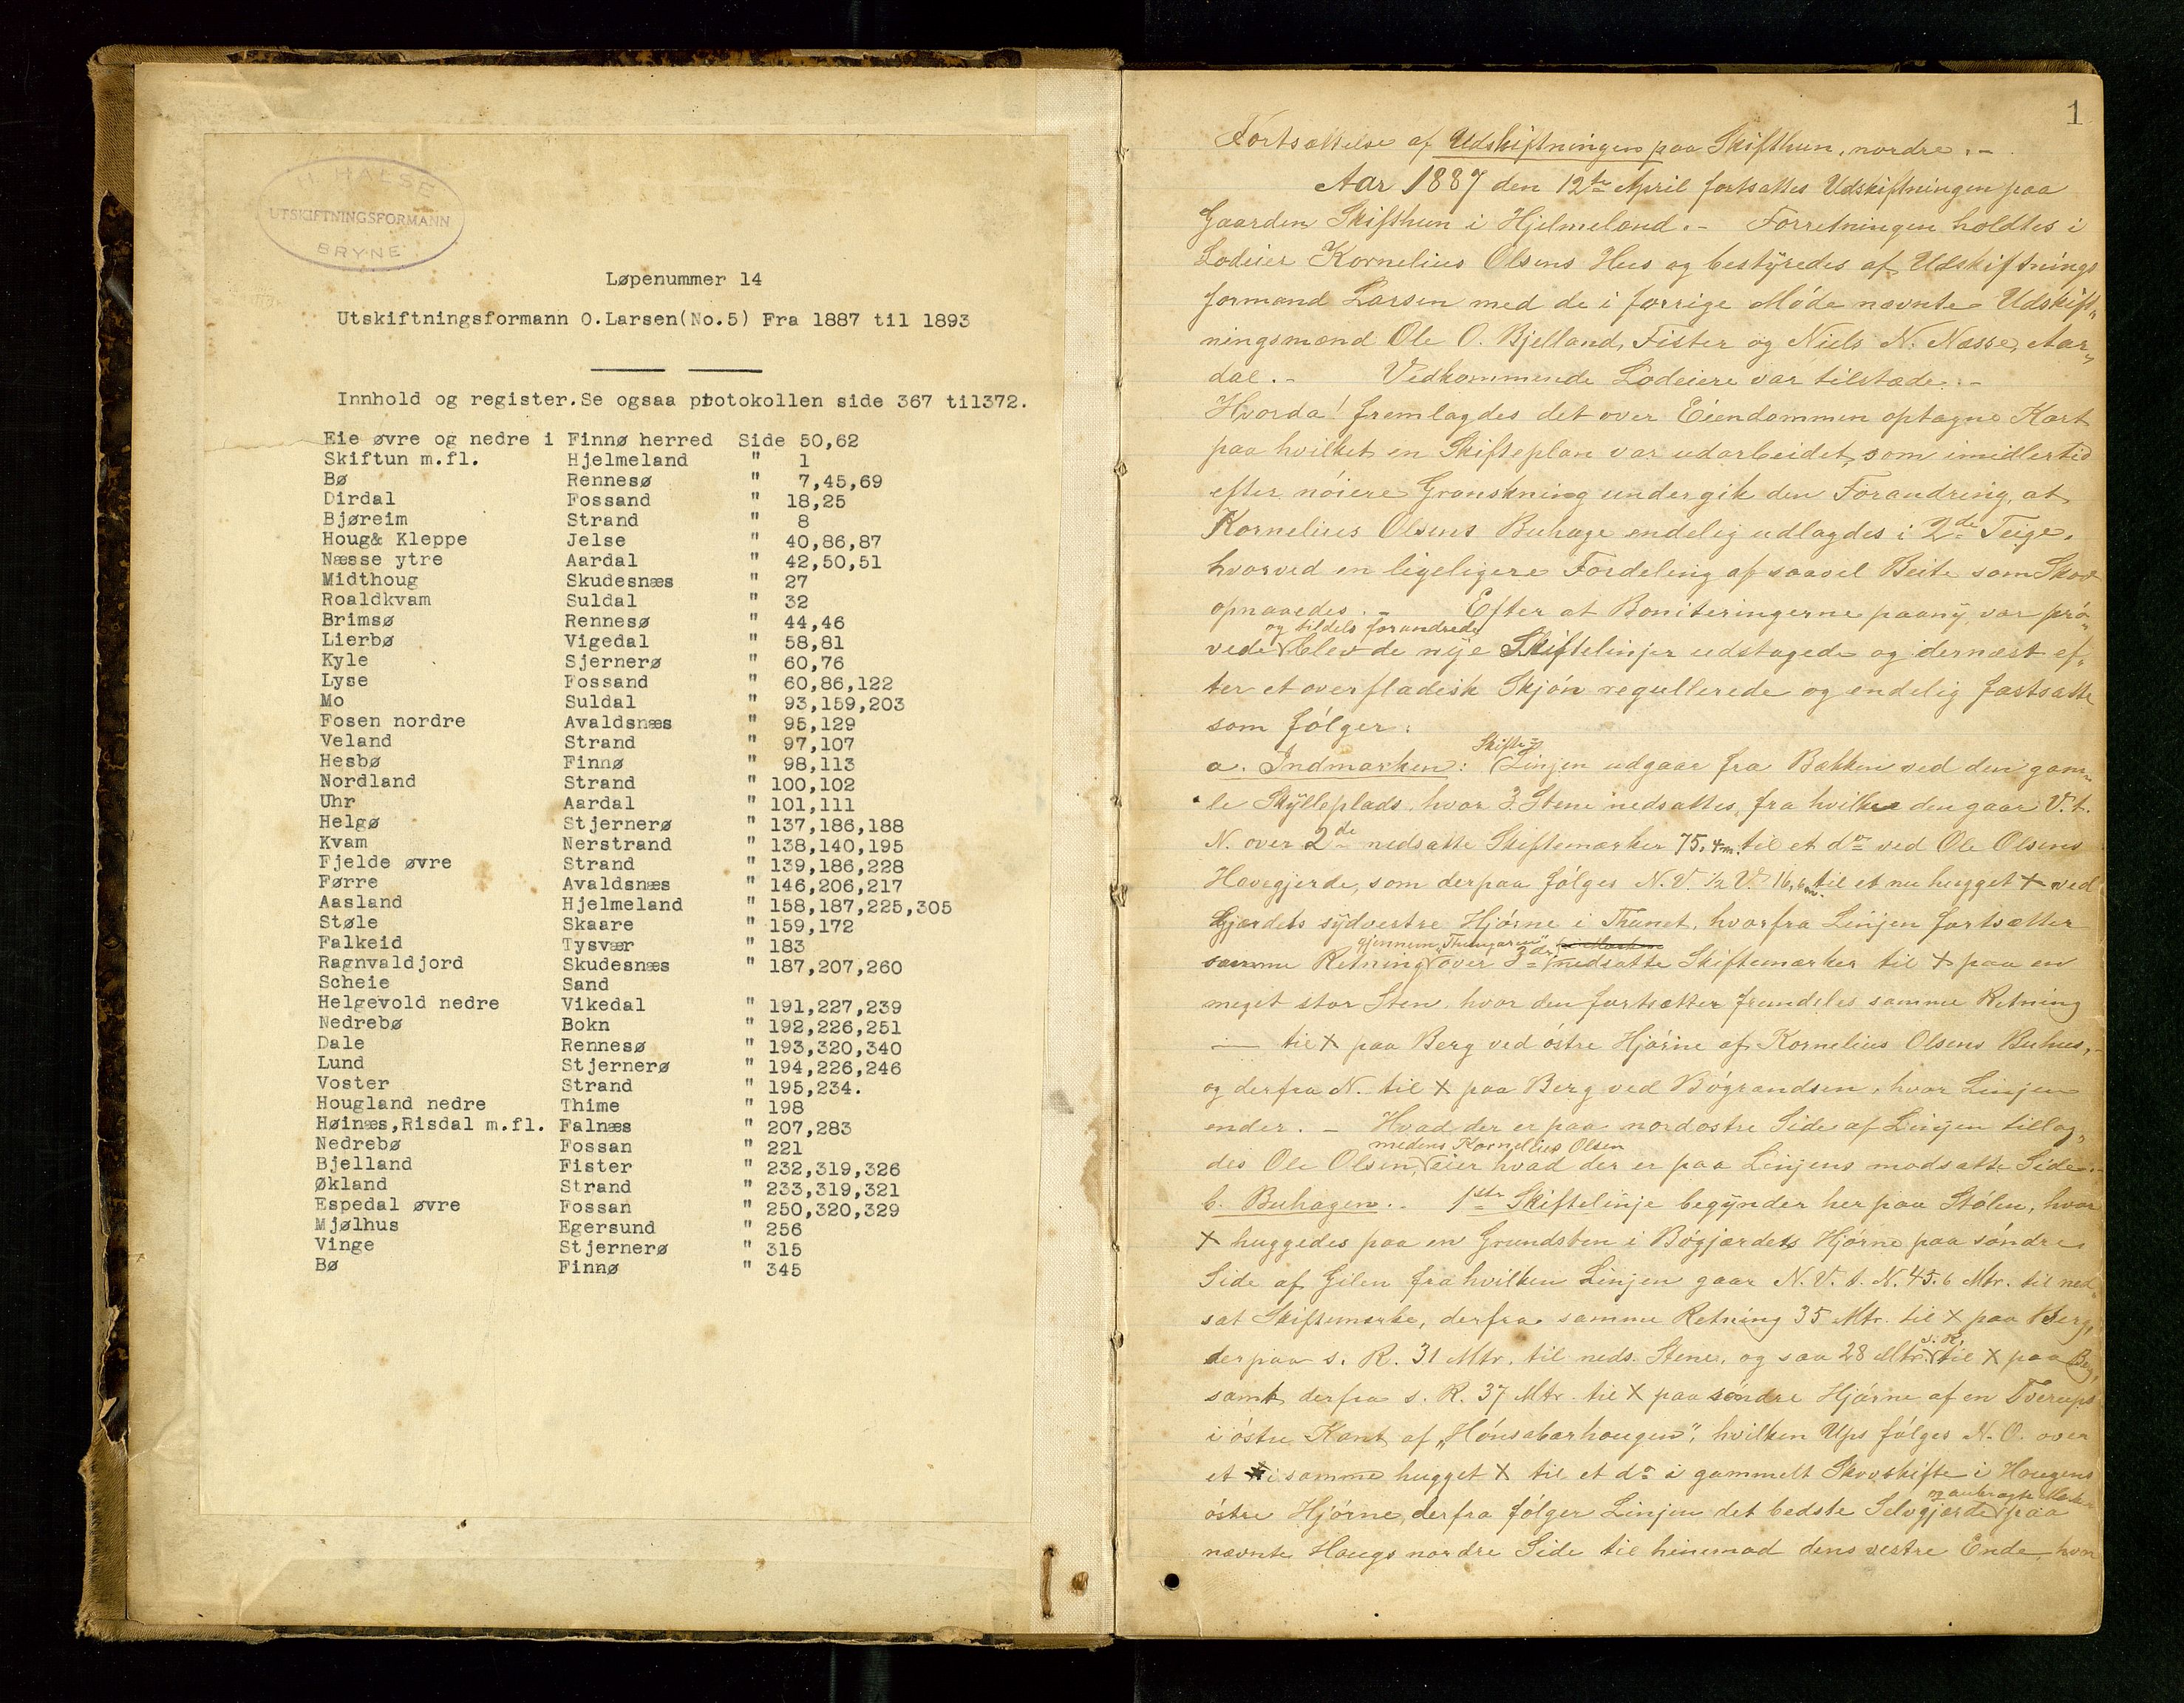 H. HALSE
UTSKIFTNINGSFORMANN
BRYNE
Løpenummer 14
Utskiftningsformann O.Larsen(No.5) Fra 1887 til 1893
Innhold og register.Se ogsaa protokollen side 367 til372.
Eie øvre og nedre i Finnø herred Side 50,62
Skiftun m.fl. Hjelmeland " 1
Bø Rennesø " 7,45,69
Dirdal Fossand " 18,25
Bjøreim Strand " 8
Houg& Kleppe Jelse " 40,86,87
Næsse ytre Aardal " 42,50,51
Midthoug Skudesnæs " 27
Roaldkvam Suldal " 32
Brimsø Rennesø " 44,46
Lierbø Vigedal " 58,81
Kyle Sjernerø " 60,76
Lyse Fossand " 60,86,122
Mo Suldal " 93,159,203
Fosen nordre Avaldsnæs " 95,129
Veland Strand " 97,107
Hesbø Finnø " 98,113
Nordland Strand " 100,102
Uhr Aardal " 101,111
Helgø Stjernerø " 137,186,188
Kvam Nerstrand " 138,140,195
Fjelde øvre Strand " 139,186,228
Førre Avaldsnæs " 146,206,217
Aasland Hjelmeland " 158,187,225,305
Støle Skaare " 159,172
Falkeid Tysvær " 183
Ragnvaldjord Skudesnæs " 187,207,260
Scheie Sand
Helgevold nedre Vikedal " 191,227,239
Nedrebø Bokn " 192,226,251
Dale Rennesø " 193,320,340
Lund Stjernerø " 194,226,246
Voster Strand " 195,234.
Hougland nedre Thime " 198
Høinæs,Risdal m.fl. Falnæs " 207,283
Nedrebø Fossan " 221
Bjelland Fister " 232,319,326
Økland Strand " 233,319,321
Espedal øvre Fossan " 250,320,329
Mjølhus Egersund " 256
Vinge Stjernerø " 315
Bø Finnø " 345
1
Fortsættelse af Udskiftningen paa Skifthun, nordre. –
Aar 1887 den 12te April fortsattes Udskiftningen paa
Gaarden Skifthun i Hjelmeland. – Forretningen holdtes i
Lodeier Kornelius Olsens Hus og bestyredes af Udskiftnings
formand Larsen med de i forrige Møde nævnte Udskift„
ningsmænd Ole O. Bjelland, Fister og Niels N. Næsse, Aar„
dal. – Vedkommende Lodeiere var tilstæde. –
Hvorda! fremlagdes det over Eiendommen optagne Kart
paa hvilket en Skifteplan var udarbeidet, som imidlertid
efter nøiere Granskning undergik den Forandring, at
Kornelius Olsens Buhage endelig udlagdes i 2de Teige,
hvorved en ligeligere Fordeling af saavel Beite som Skov
opnaaedes. – Efter at Boniteringerne paany var prø„
og tildels forandrede
vede blev de nye Skiftelinjer udstagede og dernæst ef„
ter et overfladisk Skjøn regullerede og endelig fastsatte
som følger:
Skifte=
a. Indmarken: Linjen udgaar fra Bækken ved den gam„
le Skylleplads, hvor 3 Stene nedsattes, fra hvilke den gaar V. t.
N. over 2de nedsatte Skiftemærker 75,4m. til et do ved Ole Olsens
Havegjerde, som derpaa følges N. V. ½ V. 16,6m. til et nu hugget + ved
Gjærdets sydvestre Hjørne i Thunet, hvorfra Linjen fortsætter
gjennem „Thungaren“
samme Retning over 3de nedsatte Skiftemærker til + paa en
meget stor Sten, hvor den fortsætter fremdeles samme Retning
— til X paa Berg ved østre Hjørne af Kornelius Olsens Buhus, –
og derfra N. til X paa Berg ved Bøgrandsen, hvor Linjen
ender. – Hvad der er paa nordostre Side af Linjen tillag„
medens Kornelius Olsen
des Ole Olsen, eier hvad der er paa Linjens modsatte Side. –
b. Buhagen. – 1ste Skiftelinje begynder her paa Stølen, hvor
X huggedes paa en Grundsten i Bøgjærdets Hjørne paa søndre
Side af Gilen fra hvilken Linjen gaar N. V. t. N. 45.6 Mtr. til ned„
sat Skiftemærke, derfra samme Retning 35 Mtr. til X paa Berg,
s. R.
derpaa s. R. 31 Mtr. til neds. Stene, og saa 28 Mtr. til X paa Berg,
samt derfra s. R. 37 Mtr. til X paa søndre Hjørne af en Tverups
i østre Kant af „Hønsabærhougen“, hvilken Ups følges N. O. over
et i samme hugget X til et do i gammelt Skovskifte i Hougens
og anbragte Mærker
østre Hjørne, derfra følger Linjen det bedste Selvgjærde paa
nævnte Hougs nordre Side til henimod dens vestre Ende, hvor